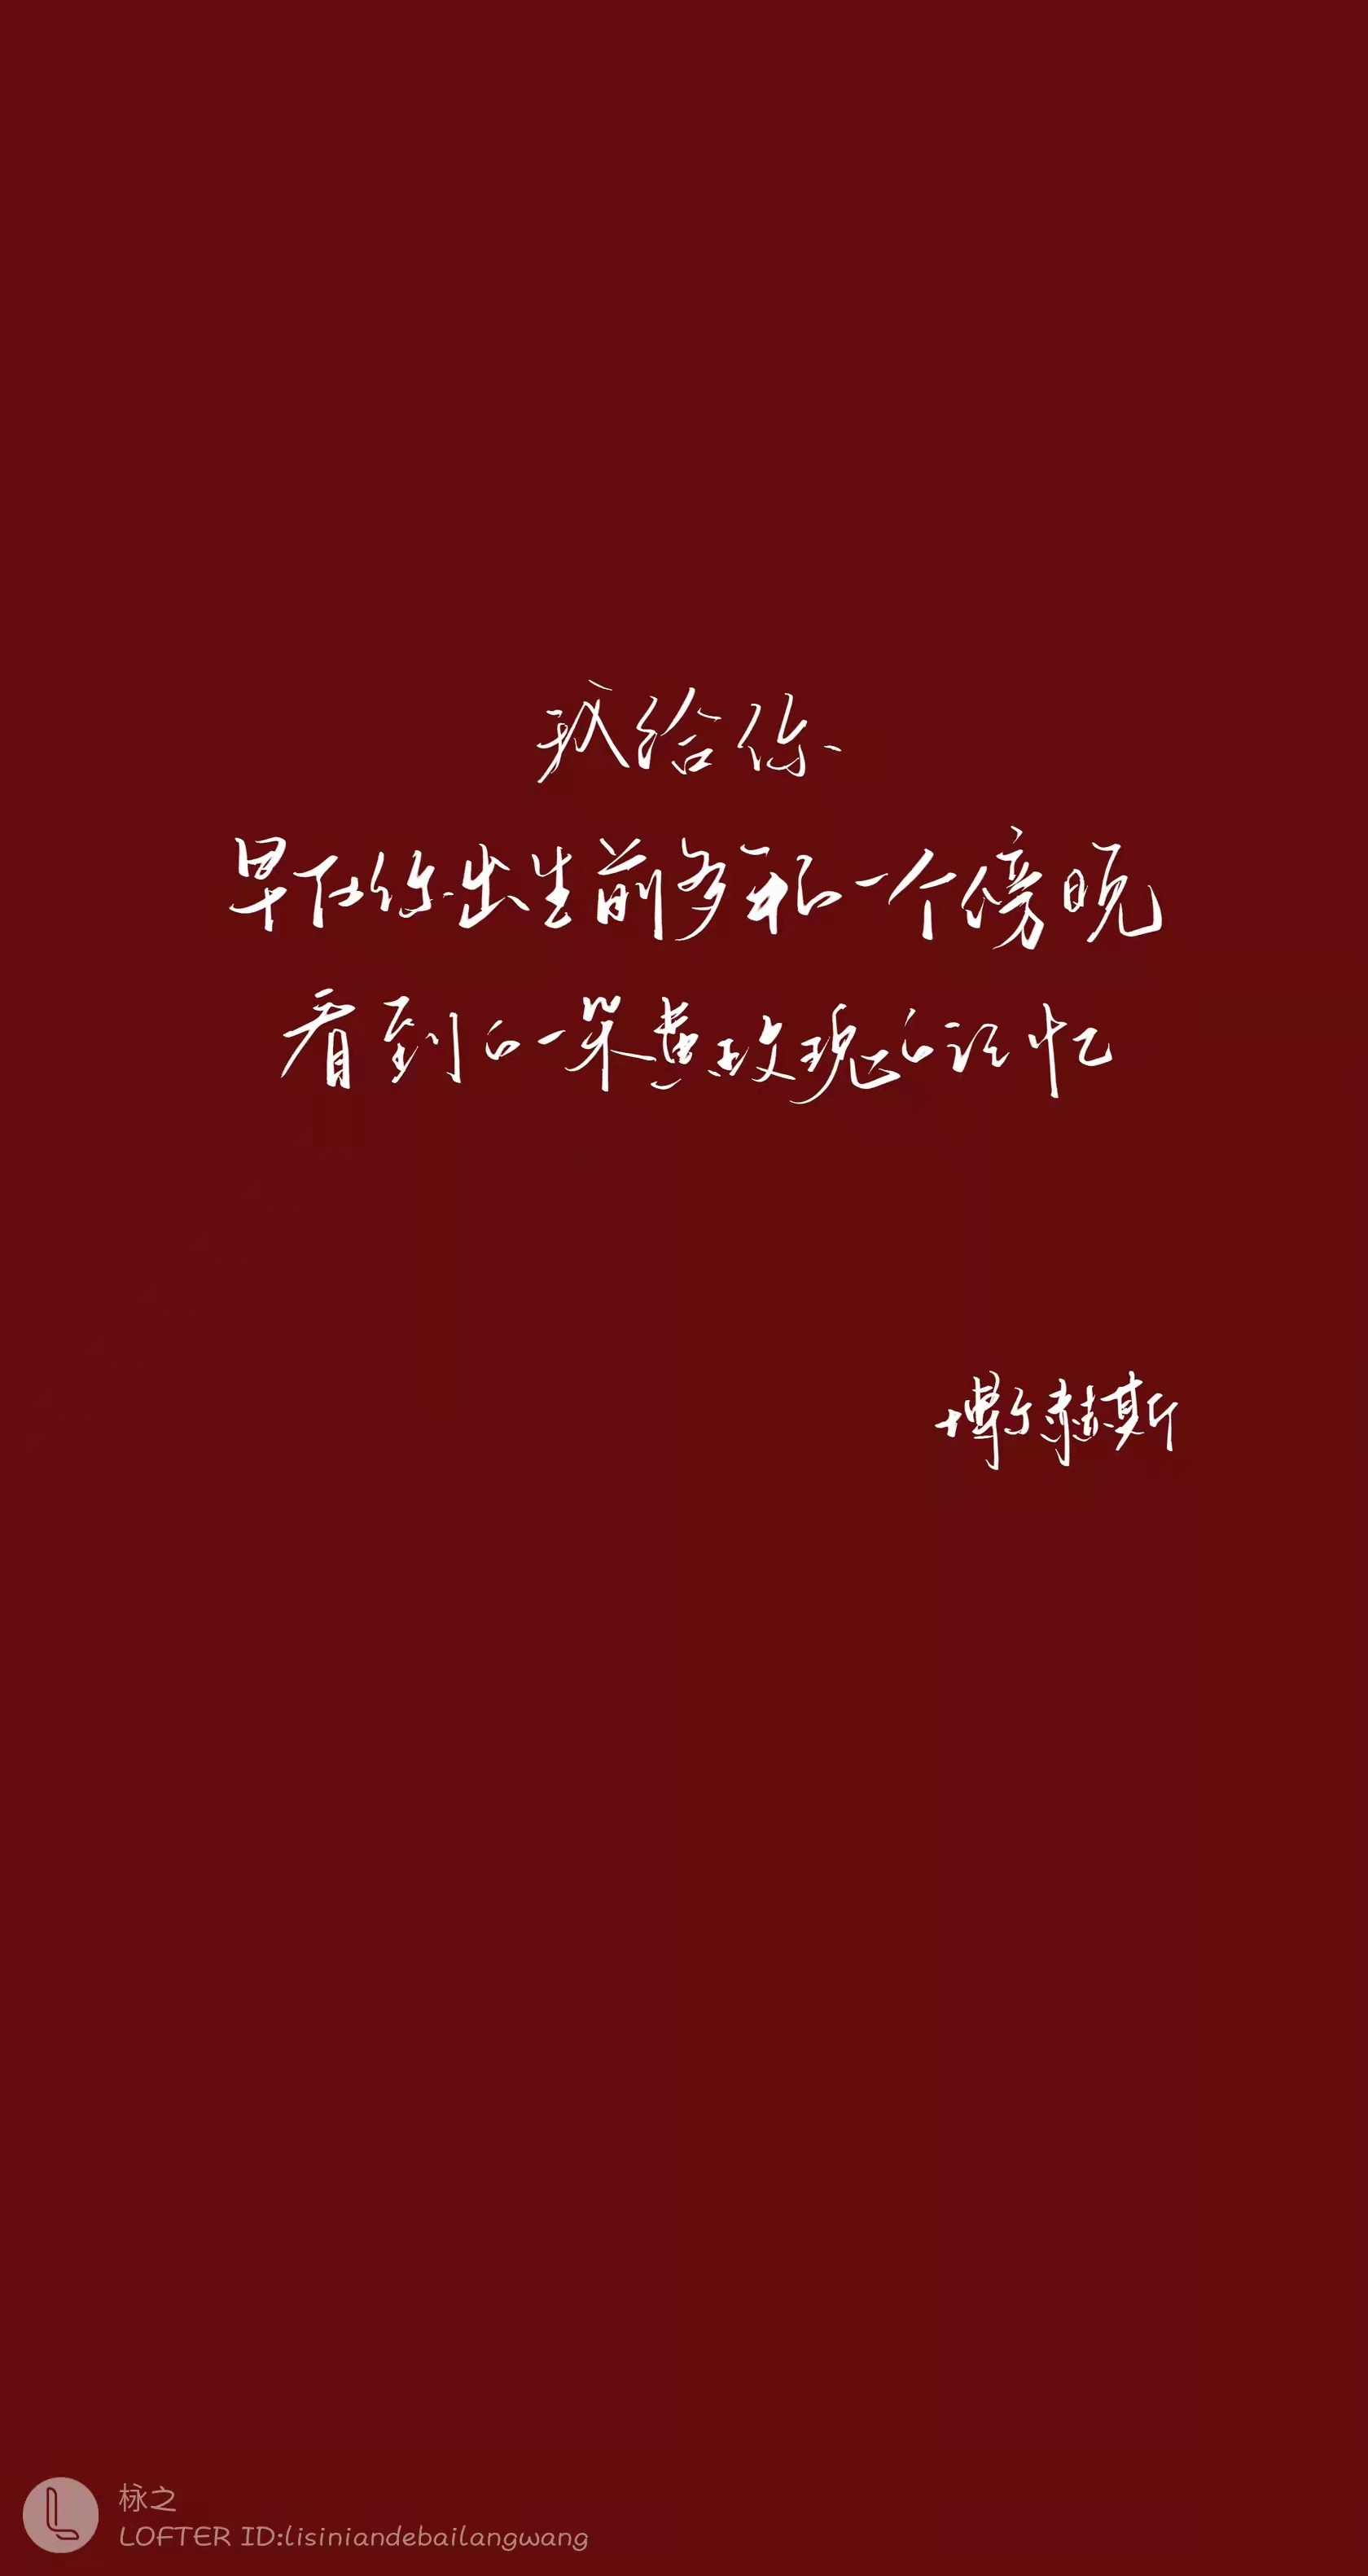 我给你
早在你出生前多年和一个傍晚
看到的一朵黄玫瑰的记忆
博尔赫斯
柡之
LOFTER ID:lisiniandebailangwang